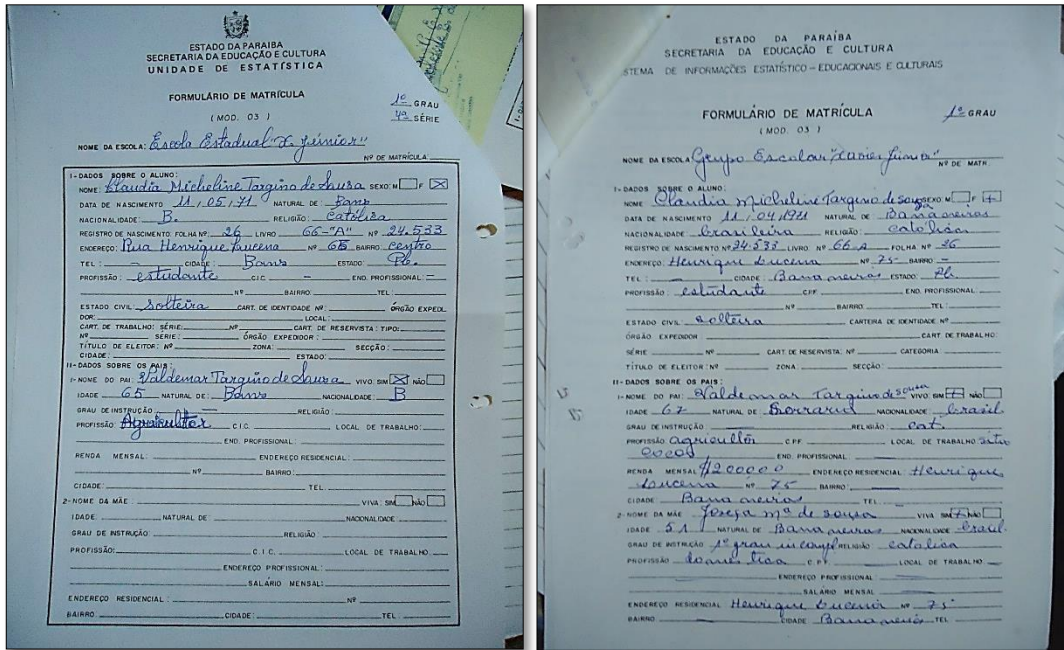 ESTADO DA PARAIBA
SECRETARIA DA EDUCAÇÃO E CULTURA
UNIDADE DE ESTATÍSTICA
FORMULÁRIO DE MATRÍCULA
(MOD. 03)
1º GRAU
4ª SÉRIE
NOME DA ESCOLA: Escola Estadual "X. Júnior"
Nº DE MATRÍCULA:
I-DADOS SOBRE O ALUNO:
NOME: Claudia Micheline Targino de Sousa SEXO: M F X
DATA DE NASCIMENTO 11, 05, 71 NATURAL DE: Bans
NACIONALIDADE: B. RELIGIÃO: Católica
REGISTRO DE NASCIMENTO: FOLHA Nº: 26 LIVRO 66-"A" Nº 24.533
ENDEREÇO: Rua Henrique Lucena Nº 65 BAIRRO: centro
TEL: — CIDADE: Bans ESTADO: Pb.
PROFISSÃO: estudante C.I.C. — END. PROFISSIONAL: —
Nº BAIRRO: TEL:
ESTADO CIVIL: solteira CART. DE IDENTIDADE Nº: ÓRGÃO EXPEDI.
DOR: LOCAL:
CART. DE TRABALHO: SÉRIE: Nº CART. DE RESERVISTA: TIPO:
Nº SERIE: ÓRGÃO EXPEDIDOR:
TÍTULO DE ELEITOR: Nº ZONA: SECÇÃO:
CIDADE: ESTADO:
II-DADOS SOBRE OS PAIS:
1-NOME DO PAI: Valdemar Targino de Sousa VIVO: SIM X NÃO
IDADE 65 NATURAL DE: Bans NACIONALIDADE: B
GRAU DE INSTRUÇÃO: — RELIGIÃO:
PROFISSÃO: Agricultor C.I.C. LOCAL DE TRABALHO:
END. PROFISSIONAL:
RENDA MENSAL: ENDEREÇO RESIDENCIAL:
Nº BAIRRO:
CIDADE: TEL
2-NOME DA MÃE VIVA: SIM NÃO
IDADE: NATURAL DE NACIONALIDADE
GRAU DE INSTRUÇÃO: RELIGIÃO:
PROFISSÃO: C.I.C. LOCAL DE TRABALHO:
ENDEREÇO PROFISSIONAL:
SALÁRIO MENSAL:
ENDEREÇO RESIDENCIAL: Nº
BAIRRO: CIDADE: TEL
ESTADO DA PARAÍBA
SECRETARIA DA EDUCAÇÃO E CULTURA
STEMA DE INFORMAÇÕES ESTATÍSTICO-EDUCACIONAIS E CULTURAIS
FORMULÁRIO DE MATRÍCULA 1º GRAU
(MOD. 03)
NOME DA ESCOLA Grupo Escolar "Xavier Júnior" Nº DE MATR.
I-DADOS SOBRE O ALUNO:
NOME Claudia Micheline Targino de sousa SEXO: M F +
DATA DE NASCIMENTO 11, 04, 1971 NATURAL DE Bananeiras
NACIONALIDADE: brasileira RELIGIÃO: catolica
REGISTRO DE NASCIMENTO: Nº 24.533 LIVRO Nº 66-A FOLHA Nº 26
ENDEREÇO: Henrique Lucena Nº 75 BAIRRO —
TEL: CIDADE: Bananeiras ESTADO: Pb.
PROFISSÃO: estudante CPF END. PROFISSIONAL:
Nº BAIRRO: TEL:
ESTADO CIVIL: solteira CARTEIRA DE IDENTIDADE Nº
ÓRGÃO EXPEDIDOR CART. DE TRABALHO:
SÉRIE Nº CART. DE RESERVISTA: Nº CATEGORIA
TÍTULO DE ELEITOR: Nº ZONA SECÇÃO:
II-DADOS SOBRE OS PAIS:
1-NOME DO PAI: Valdemar Targino de sousa VIVO: SIM + NÃO
IDADE 67 NATURAL DE NACIONALIDADE brasil
GRAU DE INSTRUÇÃO — RELIGIÃO: cat.
PROFISSÃO agricultor C.P.F. LOCAL DE TRABALHO: sitio
cocos END. PROFISSIONAL:
RENDA MENSAL ENDEREÇO RESIDENCIAL: Henrique
Lucena Nº 75 BAIRRO:
CIDADE Bananeiras TEL
2-NOME DA MÃE Josefa Mª de sousa VIVA SIM NÃO
IDADE 51 NATURAL DE Bananeiras NACIONALIDADE brasil
GRAU DE INSTRUÇÃO 1º grau incompl RELIGIÃO: catolica
PROFISSÃO domestica C.P.F. LOCAL DE TRABALHO —
ENDEREÇO PROFISSIONAL
SALÁRIO MENSAL
ENDEREÇO RESIDENCIAL Henrique Lucena Nº 75
BAIRRO CIDADE Bananeiras TEL